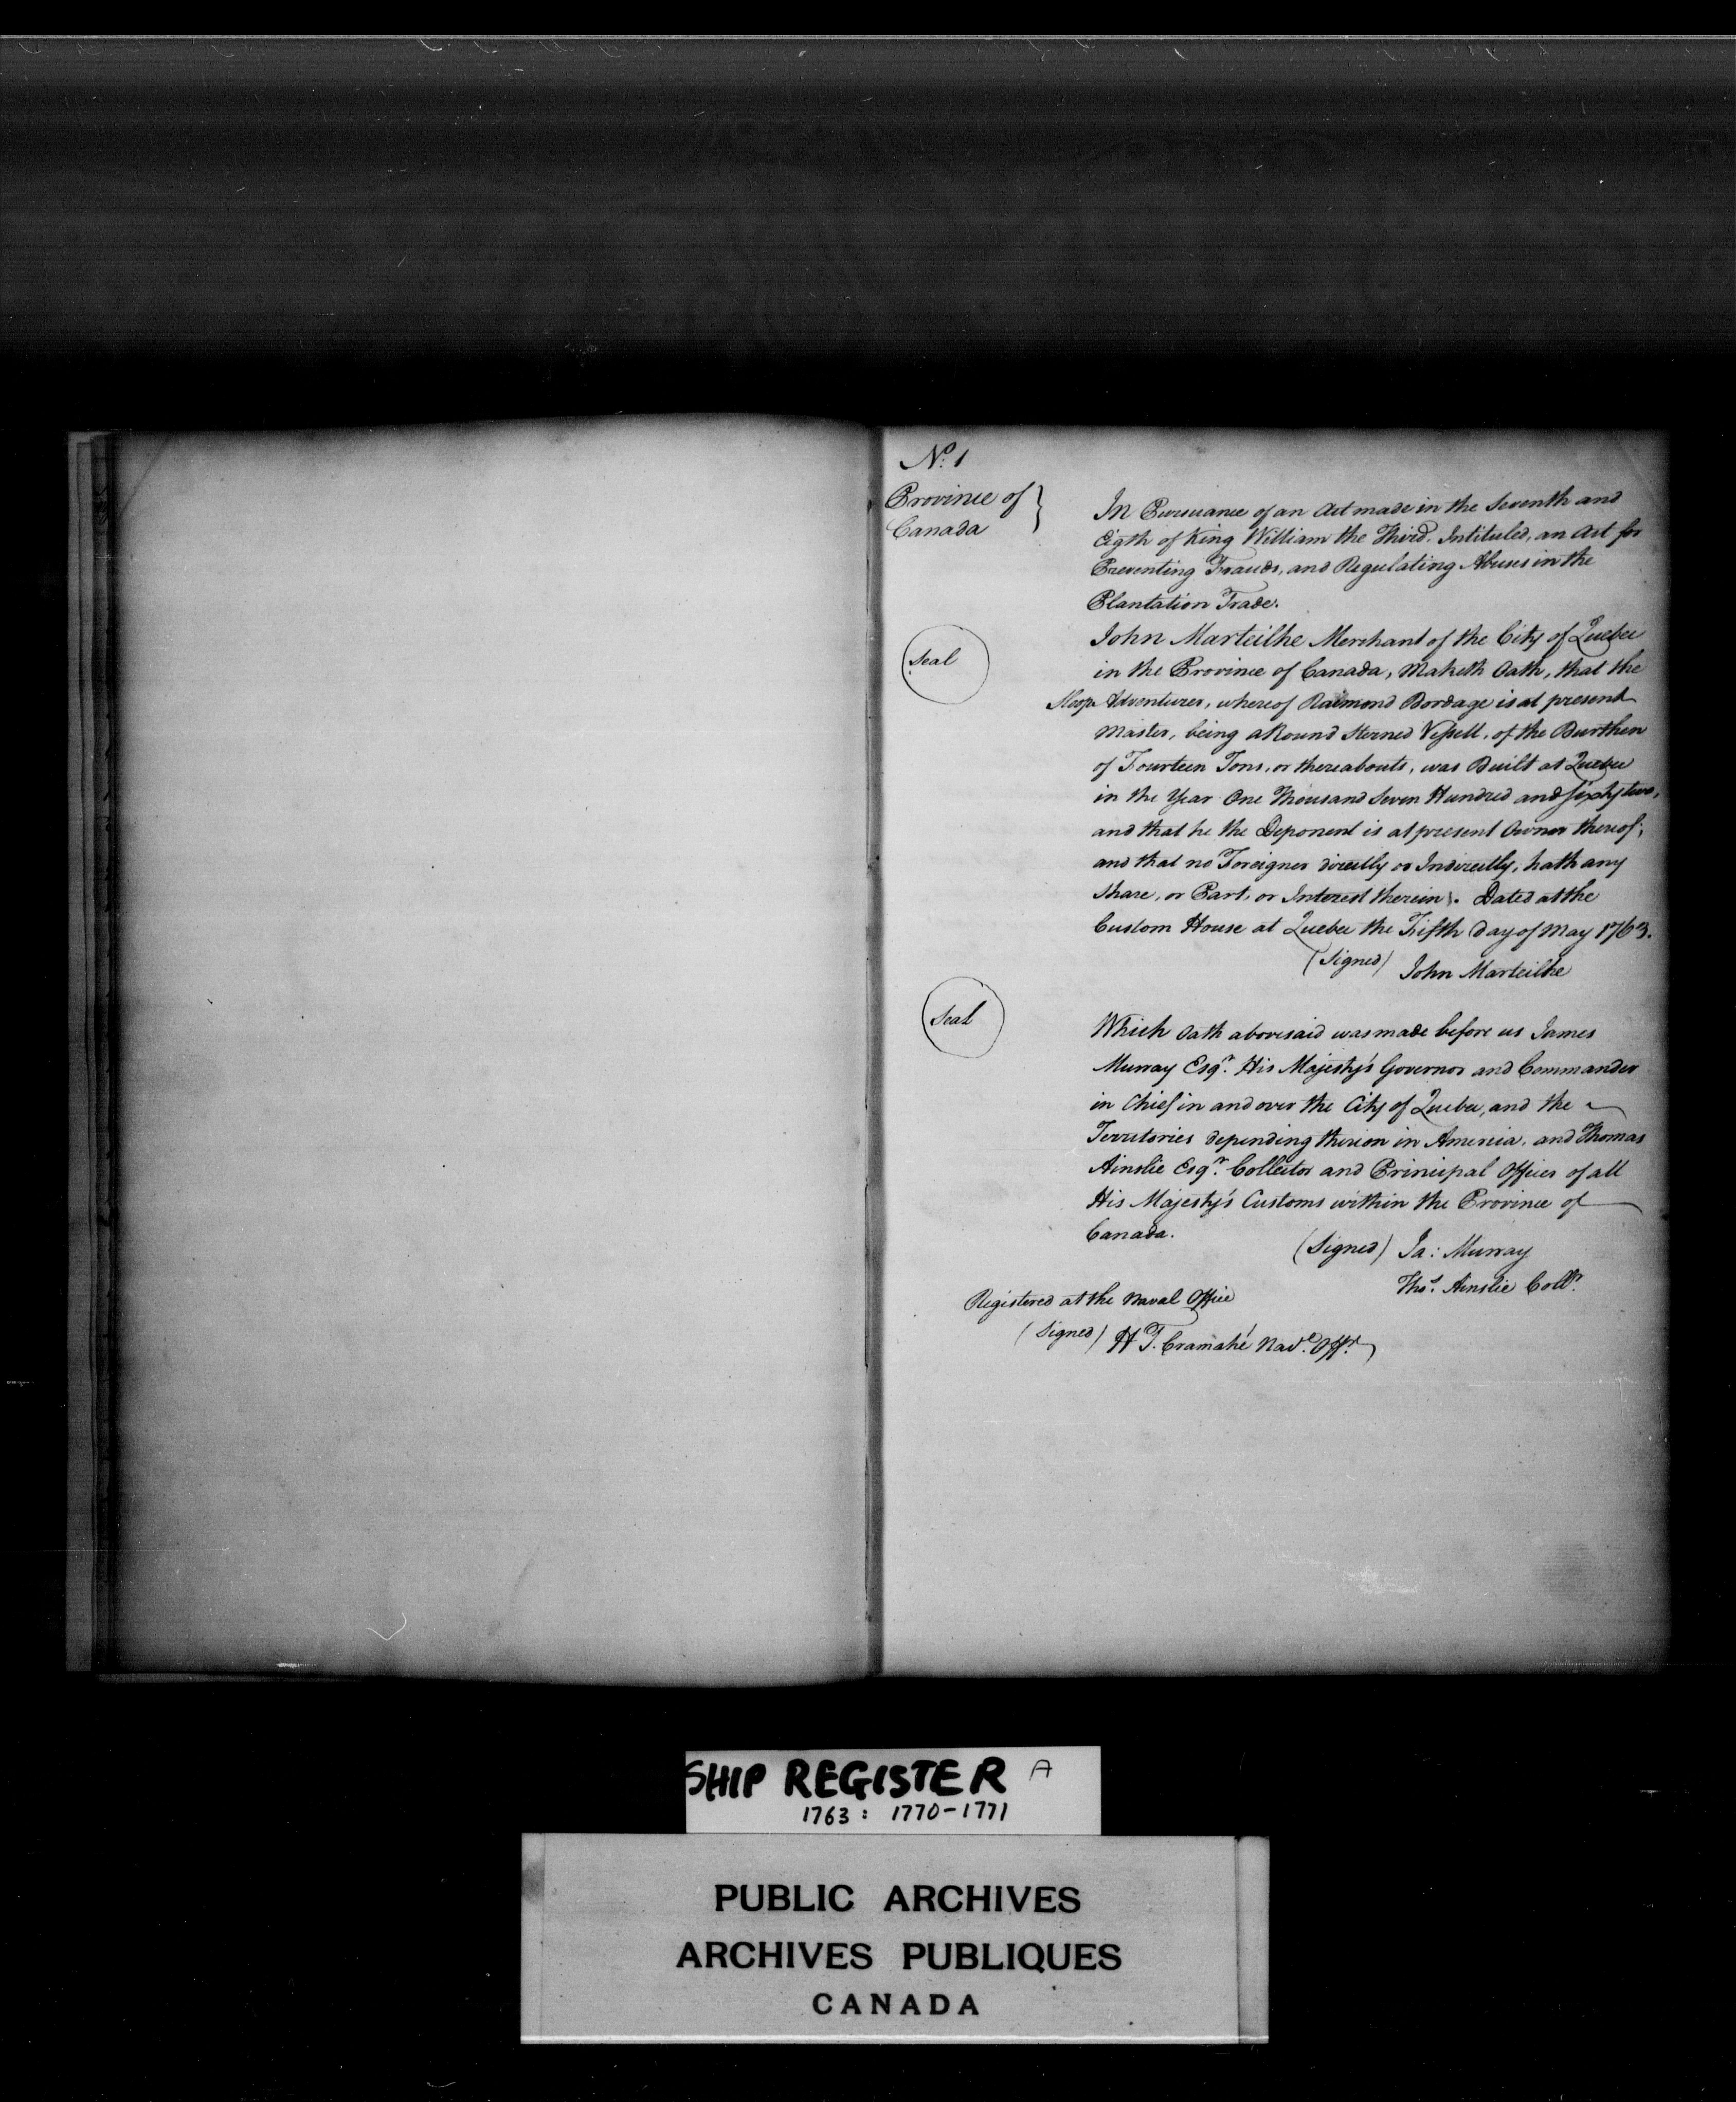 No. 1
Province of }
Canada
In Pursuance of an Act made in the Seventh and
Eigth of King William the Third. Intituled, an Act for
Preventing Frauds, and Regulating Abuses in the
Plantation Trade.
Seal
John Marteilhe Merchant of the City of Quebec
in the Province of Canada, Maketh Oath, that the
Sloop Adventurer, whereof Raimond Bordage is at present
Master, being a Round Sterned Vessell, of the Burthen
of Fourteen Tons, or thereabouts, was Built at Quebec
in the Year One Thousand Seven Hundred and Sixty two,
and that he the Deponent is at present Owner thereof;
and that no Foreigner directly or Indirectly, hath any
Share, or Part, or Interest therein. Dated at the
Custom House at Quebec the Fifth Day of May 1763.
(Signed) John Marteilhe
Seal
Which Oath abovesaid was made before us James
Murray Esqr. His Majesty's Governor and Commander
in Chief in and over the City of Quebec, and the
Territories depending thereon in America, and Thomas
Ainslie Esqr. Collector and Principal Officer of all
His Majesty's Customs within the Province of
Canada.
(Signed) Ja: Murray
Thos. Ainslie Collr.
Registered at the Naval Office
(Signed) H T. Cramahé Navl. Offr.
SHIP REGISTER A
1763: 1770-1771
PUBLIC ARCHIVES
ARCHIVES PUBLIQUES
CANADA